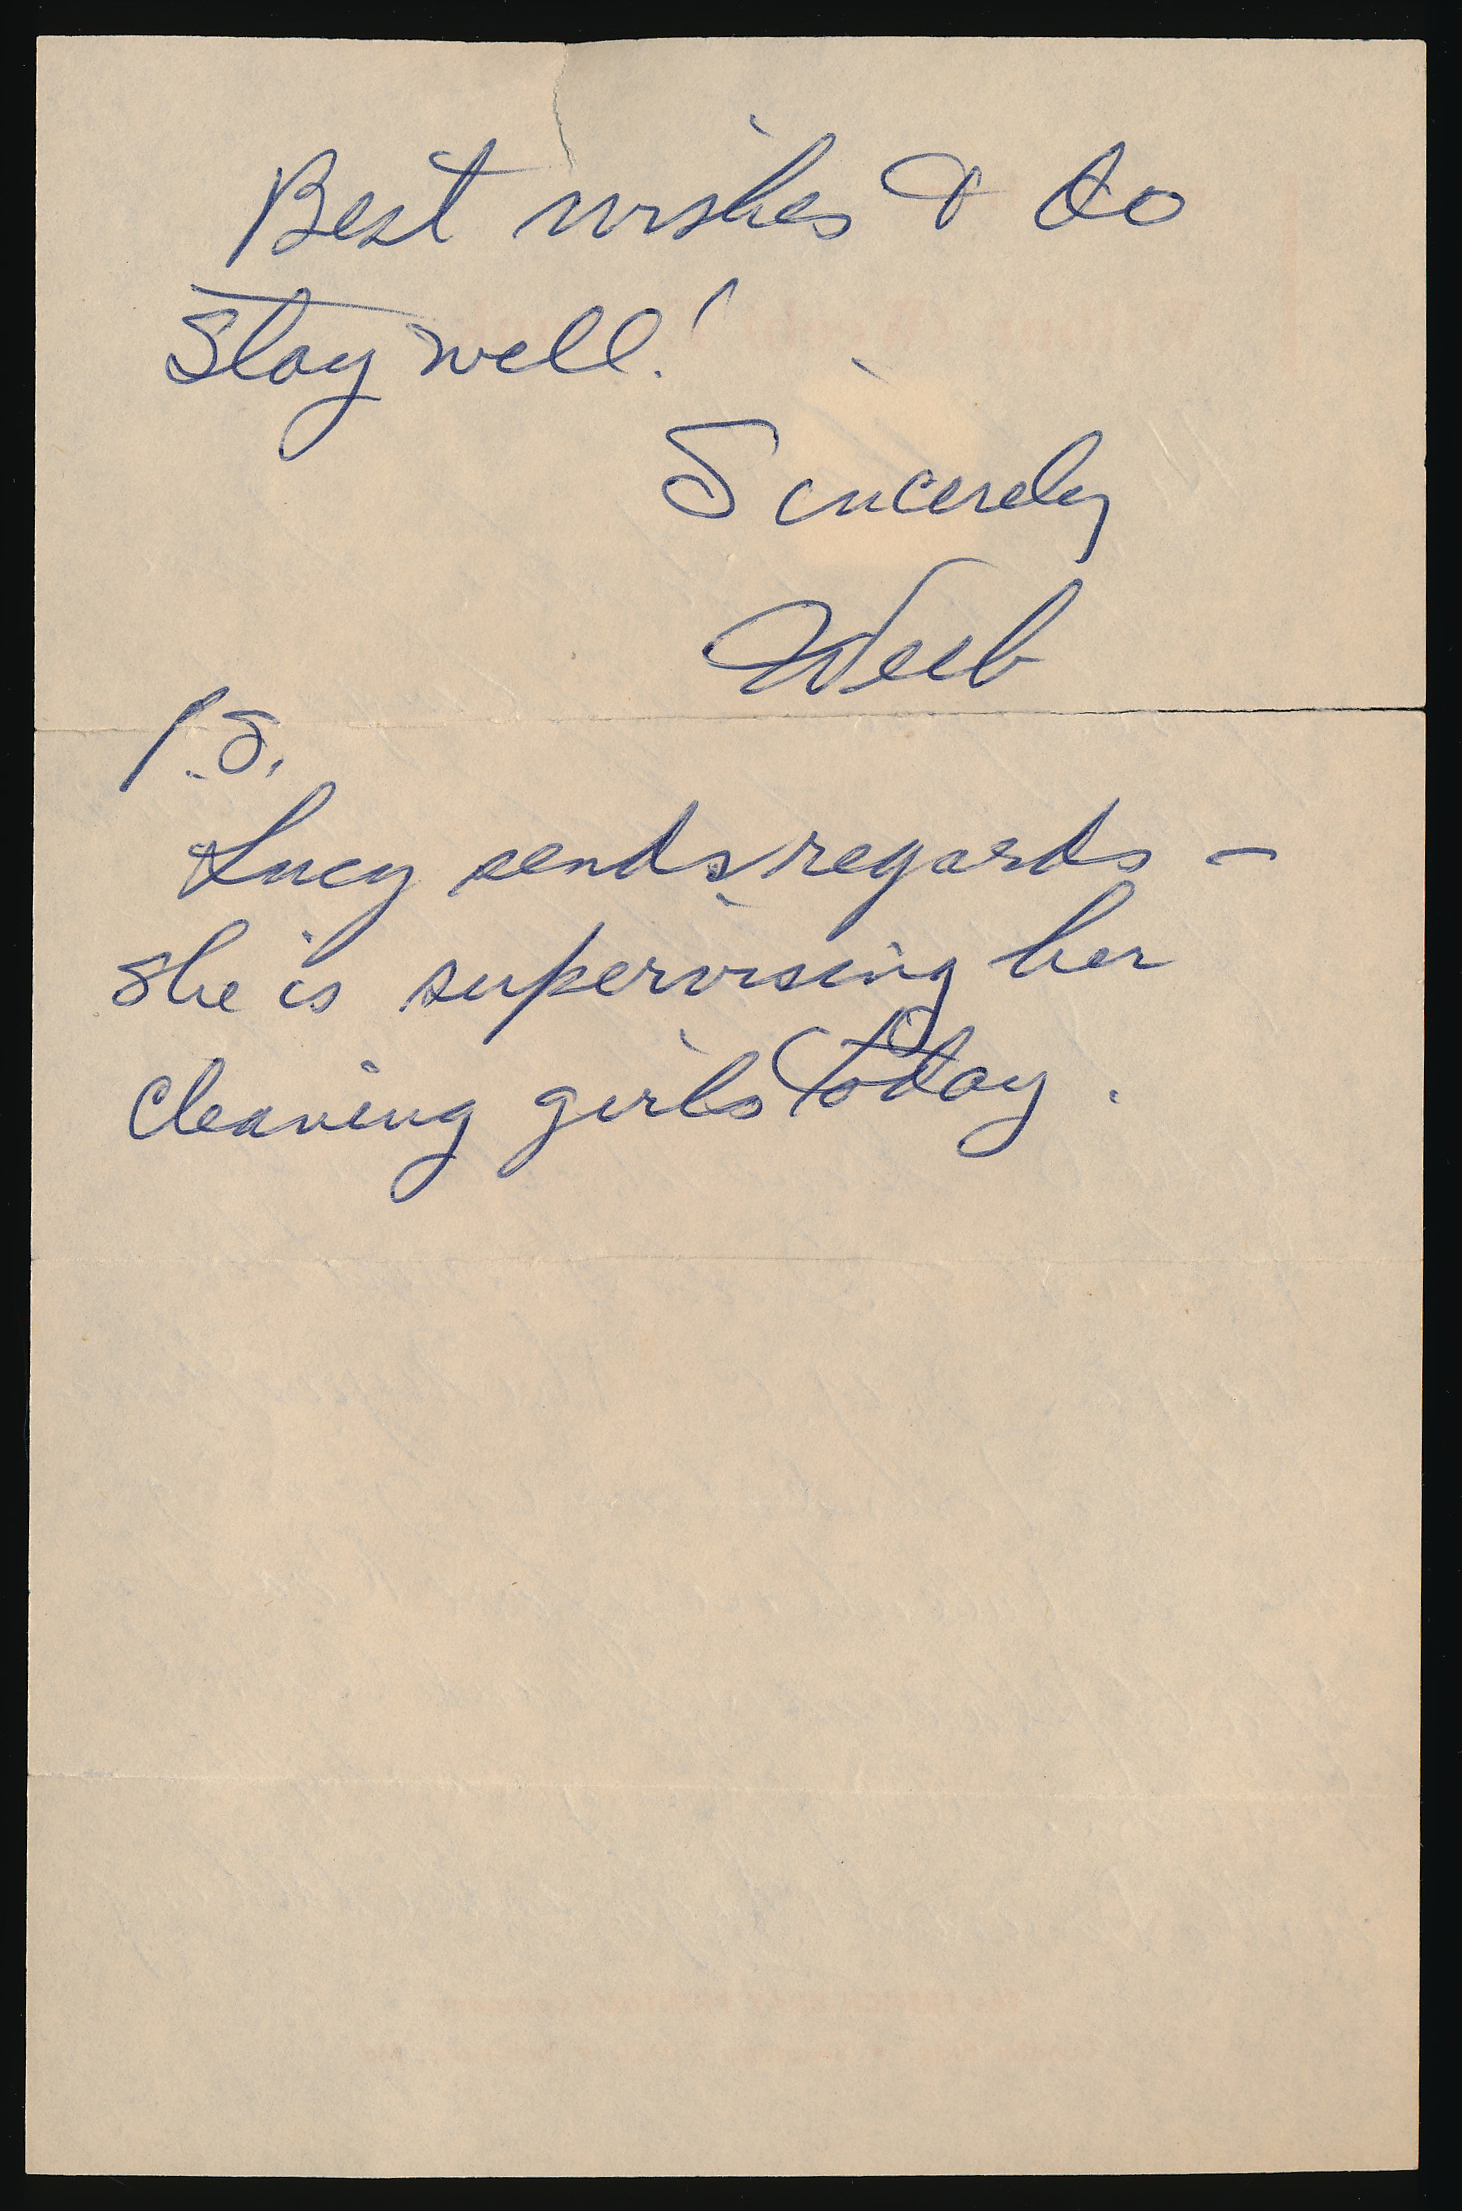 Best wishes & do
stay well!
Sincerely
Weeb
P.S.
Lucy sends regards –
She is supervising her
cleaning girls today.